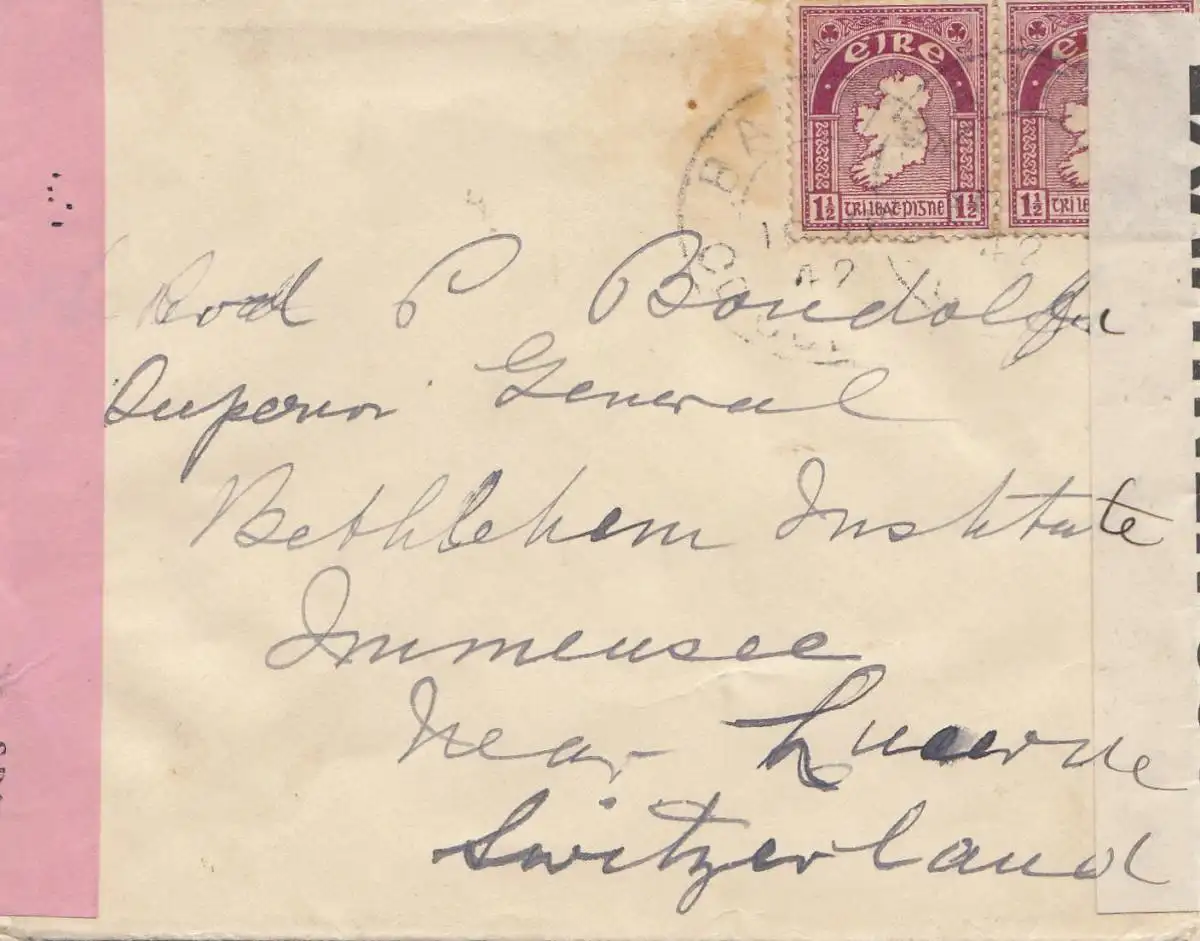 EIRE
1½ TRÍ LEAT-PISNE 1½
1½ TRÍ
42
42
P Bondolfi
Superior General
Bethlehem Institute
Immensee
Near Lucerne
Switzerland